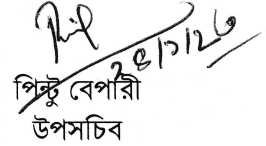 ২৫/১/২৬
পিন্টু বেপারী
উপসচিব